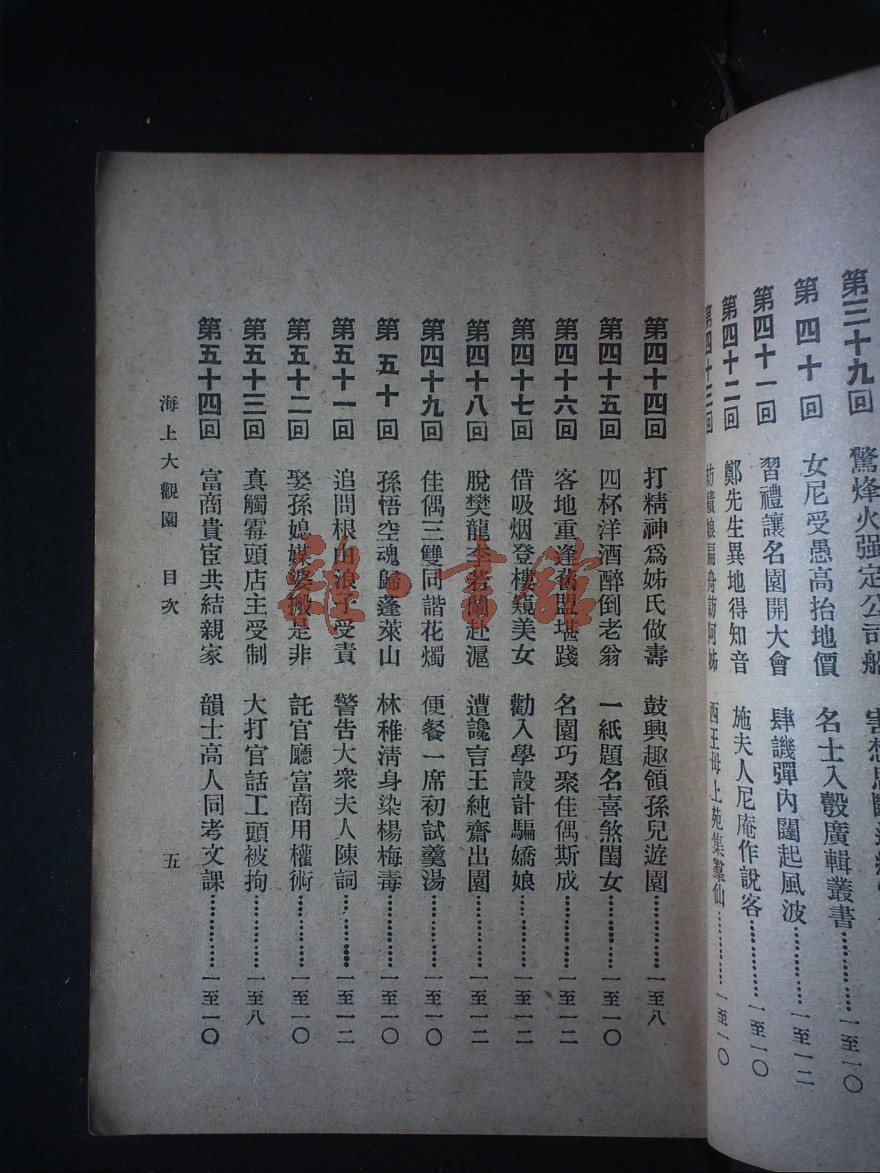 第三十九回 驚烽火强定公司船
第四十回 女尼受愚高抬地價 名士入彀廣輯叢書…………一至一〇
第四十一回 習禮讓名園開大會 肆譏彈內閨起風波…………一至一二
第四十二回 鄭先生異地得知音 施夫人尼庵作說客…………一至一〇
第四十三回 紡績娘扁舟訪阿姊 西王母上苑集羣仙…………一至一〇
第四十四回 打精神爲姊氏做壽 鼓興趣領孫兒遊園…………一至八
第四十五回 四杯洋酒醉倒老翁 一紙題名喜煞閨女…………一至一〇
第四十六回 客地重逢舊盟堪踐 名園巧聚佳偶斯成…………一至一〇
第四十七回 借吸烟登樓窺美女 勸入學設計騙嬌娘…………一至一二
第四十八回 脫樊龍李若蘭赴滬 遭讒言王純齋出園…………一至一二
第四十九回 佳偶三雙同諧花燭 便餐一席初試羹湯…………一至一〇
第五十回 孫悟空魂歸蓬萊山 林稚清身染楊梅毒…………一至一〇
第五十一回 追問根由浪子受責 警告大衆夫人陳詞…………一至一二
第五十二回 娶孫媳媒婆搬是非 託官廳富商用權術…………一至一〇
第五十三回 真觸霉頭店主受制 大打官話工頭被拘…………一至八
第五十四回 富商貴宦共結親家 韻士高人同考文課…………一至一〇
海上大觀園 目次 五